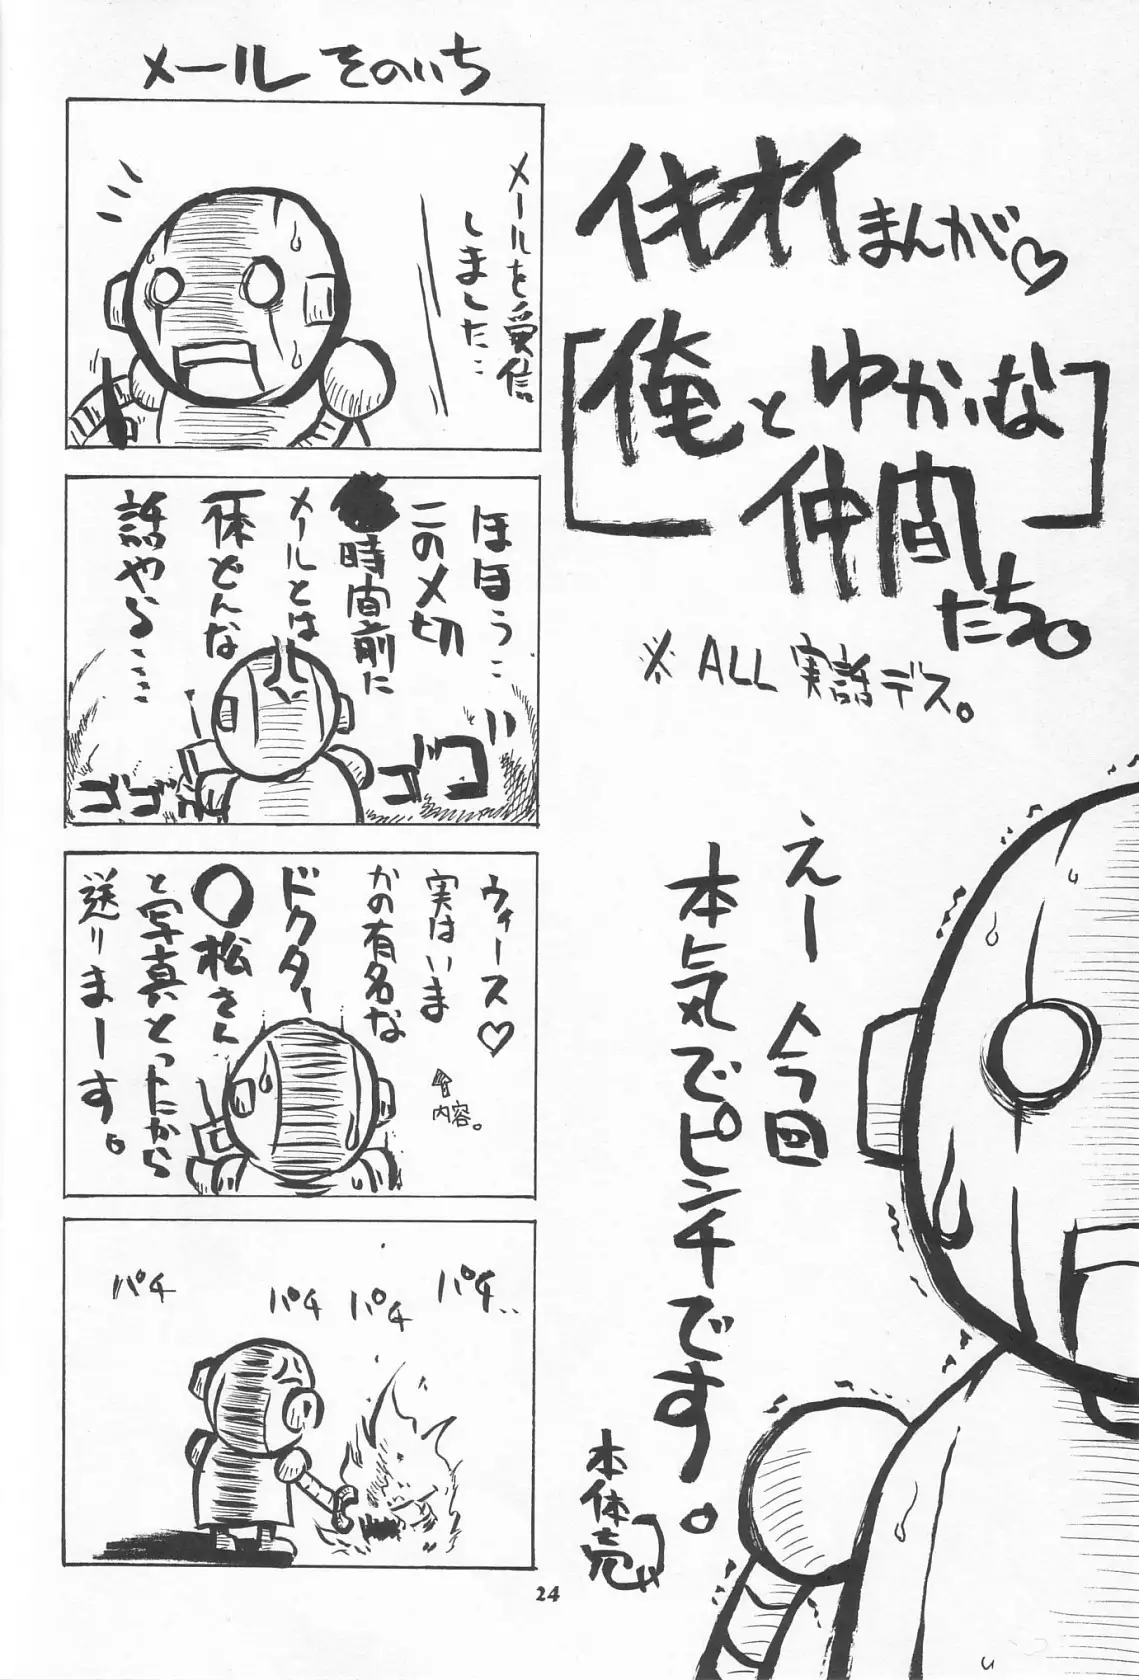 イキオイまんが♡
「俺とゆかいな
仲間たち。」
※ ALL 実話デス。
えー 今回
本気でピンチです。
メール そのいち
メールを受信
しました…
ほほう…
この〆切
●時間前に
メールとは
一体どんな
話やる…
ゴゴゴ
ゴゴ
ウィース♡
実はいま
かの有名な
ドクター
〇松さん
と写真とったから
送りまーす。
↑内容。
パチ
パチ
パチ
パチ..
24